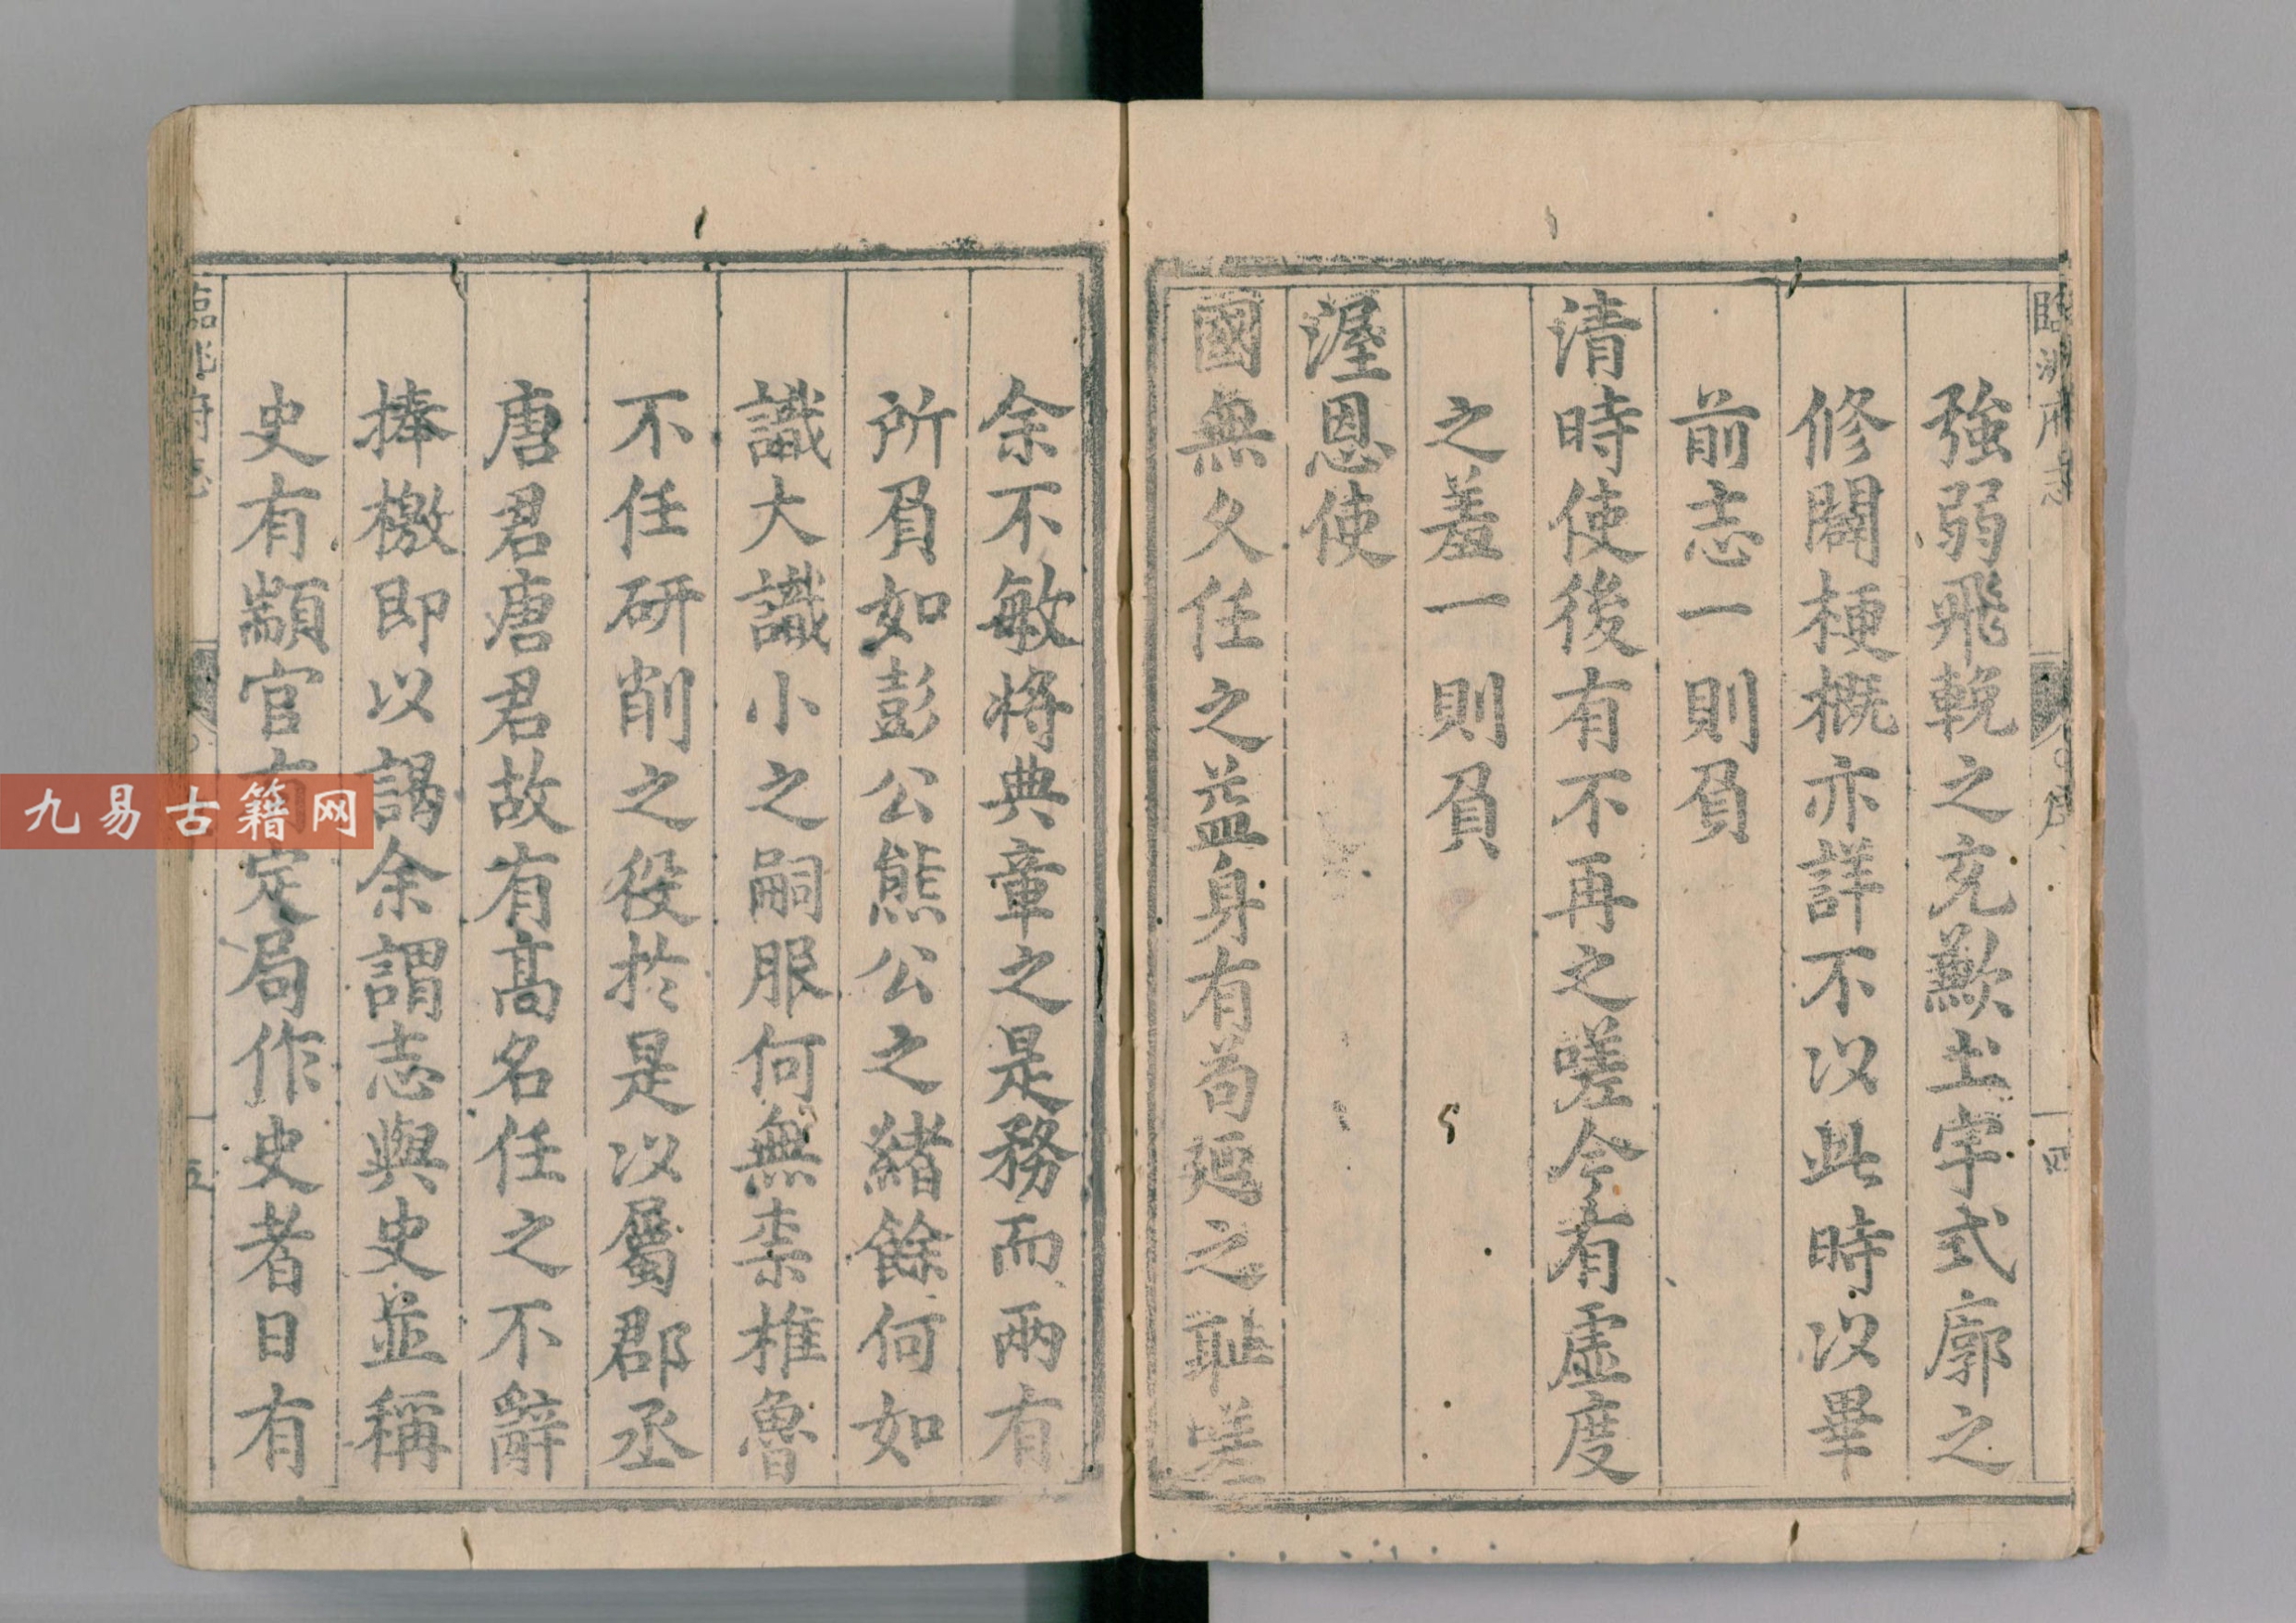 臨洮府志
序
四
強弱飛輓之充歉土宇式廓之
修闢梗概亦詳不以此時以畢
前志一則負
清時使後有不再之嗟今有虛度
之羞一則負
渥恩使
國無久任之益身有苟延之耻嗟
余不敏將典章之是務而兩有
所負如彭公熊公之緒餘何如
識大識小之嗣服何無柰椎魯
不任研削之役於是以屬郡丞
唐君唐君故有高名任之不辭
捧檄即以謁余謂志與史並稱
史有顓官有定局作史者日有
臨洮府志
五
九易古籍网